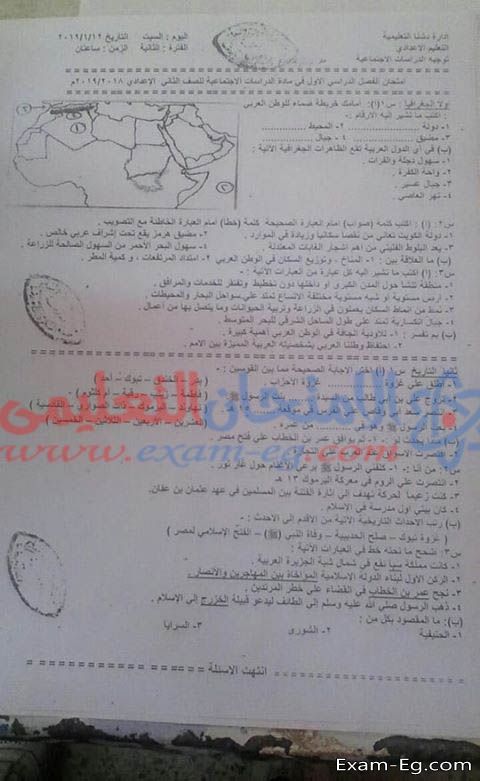 إدارة دشنا التعليمية
التعليم الاعدادي
توجيه الدراسات الاجتماعية
اليوم : السبت التاريخ ٢٠١٩/١/١٢
الفترة : الثانية الزمن : ساعتان
امتحان الفصل الدراسي الأول في مادة الدراسات الاجتماعية للصف الثاني الإعدادي ٢٠١٨/٢٠١٩م
أولا الجغرافيا : س١(أ): أمامك خريطة صماء للوطن العربي
: اكتب ما تشير إليه الارقام :-
١- دولة ............ ٢- المحيط ............
٣- مضيق ............ ٤- جبال ............
(ب) في أي الدول العربية تقع الظاهرات الجغرافية الآتية :
١- سهول دجلة والفرات .
٢- واحة الكفرة .
٣- جبال عسير .
٤- نهر العاصي .
س٢ : (أ) : اكتب كلمة (صواب) امام العبارة الصحيحة كلمة (خطأ) امام العبارة الخاطئة مع التصويب .
١- دولة الكويت تعاني من نقصا سكانيا وزيادة في الموارد . ٢- مضيق هرمز يقع تحت إشراف عربي خالص .
٣- يعد البلوط الفليني من اهم اشجار الغابات المعتدلة . ٤- سهول البحر الأحمر من السهول الصالحة للزراعة .
(ب) ما العلاقة بين : ١- المناخ ، وتوزيع السكان في الوطن العربي ٢- امتداد المرتفعات ، و كمية المطر .
س٣ : (أ) اكتب ما تشير اليه كل عبارة من العبارات الآتية :-
١- منطقة تنشأ حول المدن الكبرى أو داخلها دون تخطيط وتفتقر للخدمات والمرافق .
٢- أراض مستوية أو شبه مستوية مختلفة الاتساع تمتد علي سواحل البحار والمحيطات .
٣- نمط من انماط السكان يعملون في الزراعة وتربية الحيوانات وما يتصل بها من اعمال .
٤- جبال انكسارية تمتد علي طول الساحل الشرقي للبحر المتوسط .
(ب) بم تفسر : ١- للأودية الجافة في الوطن العربي أهمية كبيرة .
٢- احتفاظ وطننا العربي بشخصيته العربية المميزة بين الامم .
ثانيا التاريخ س١ (أ) اختر الاجابة الصحيحة مما بين القوسين :
١- أطلق علي غزوة ............ غزوة الاحزاب .
( بدر - الخندق - تبوك - احد )
٢- تزوج علي بن أبي طالب بالسيدة بنت الرسول ﷺ
علي الفرس في موقعة
الرسول ﷺ وهو في من عمره .
( العشرين - الاربعين - الثلاثين - الخمسين )
(ب) ماذا يحدث لو : ١- لم يوافق عمر بن الخطاب علي فتح مصر .
س٢ : (أ) من أنا :- ١- كلفني الرسول ﷺ برعي الأغنام حول غار ثور .
٢- انتصرت علي الروم في معركة اليرموك ١٣ هـ
٣- كنت زعيما لحركة تهدف إلي اثارة الفتنة بين المسلمين في عهد عثمان بن عفان.
٤- كان بيتي أول مدرسة في الإسلام .
(ب) رتب الاحداث التاريخية الآتية من الأقدم إلي الاحدث :-
( غزوة تبوك - صلح الحديبية - وفاة النبي (ﷺ) - الفتح الإسلامي لمصر )
س٣ : صحح ما تحته خط في العبارات الآتية :
١- كانت مملكة سبأ تقع في شمال شبة الجزيرة العربية .
٢- الركن الاول لبناء الدولة الإسلامية المؤاخاة بين المهاجرين والأنصار .
٣- نجح عمر بن الخطاب في القضاء علي خطر المرتدين .
٤- ذهب الرسول صلي الله عليه وسلم إلي الطائف ليدعو قبيلة الخزرج إلي الإسلام .
(ب): ما المقصود بكل من :
١- الحنيفية ٢- الشورى ٣- السرايا
انتهت الاسئلة
الامتحان التعليمى
www.exam-eg.com
Exam-Eg.com